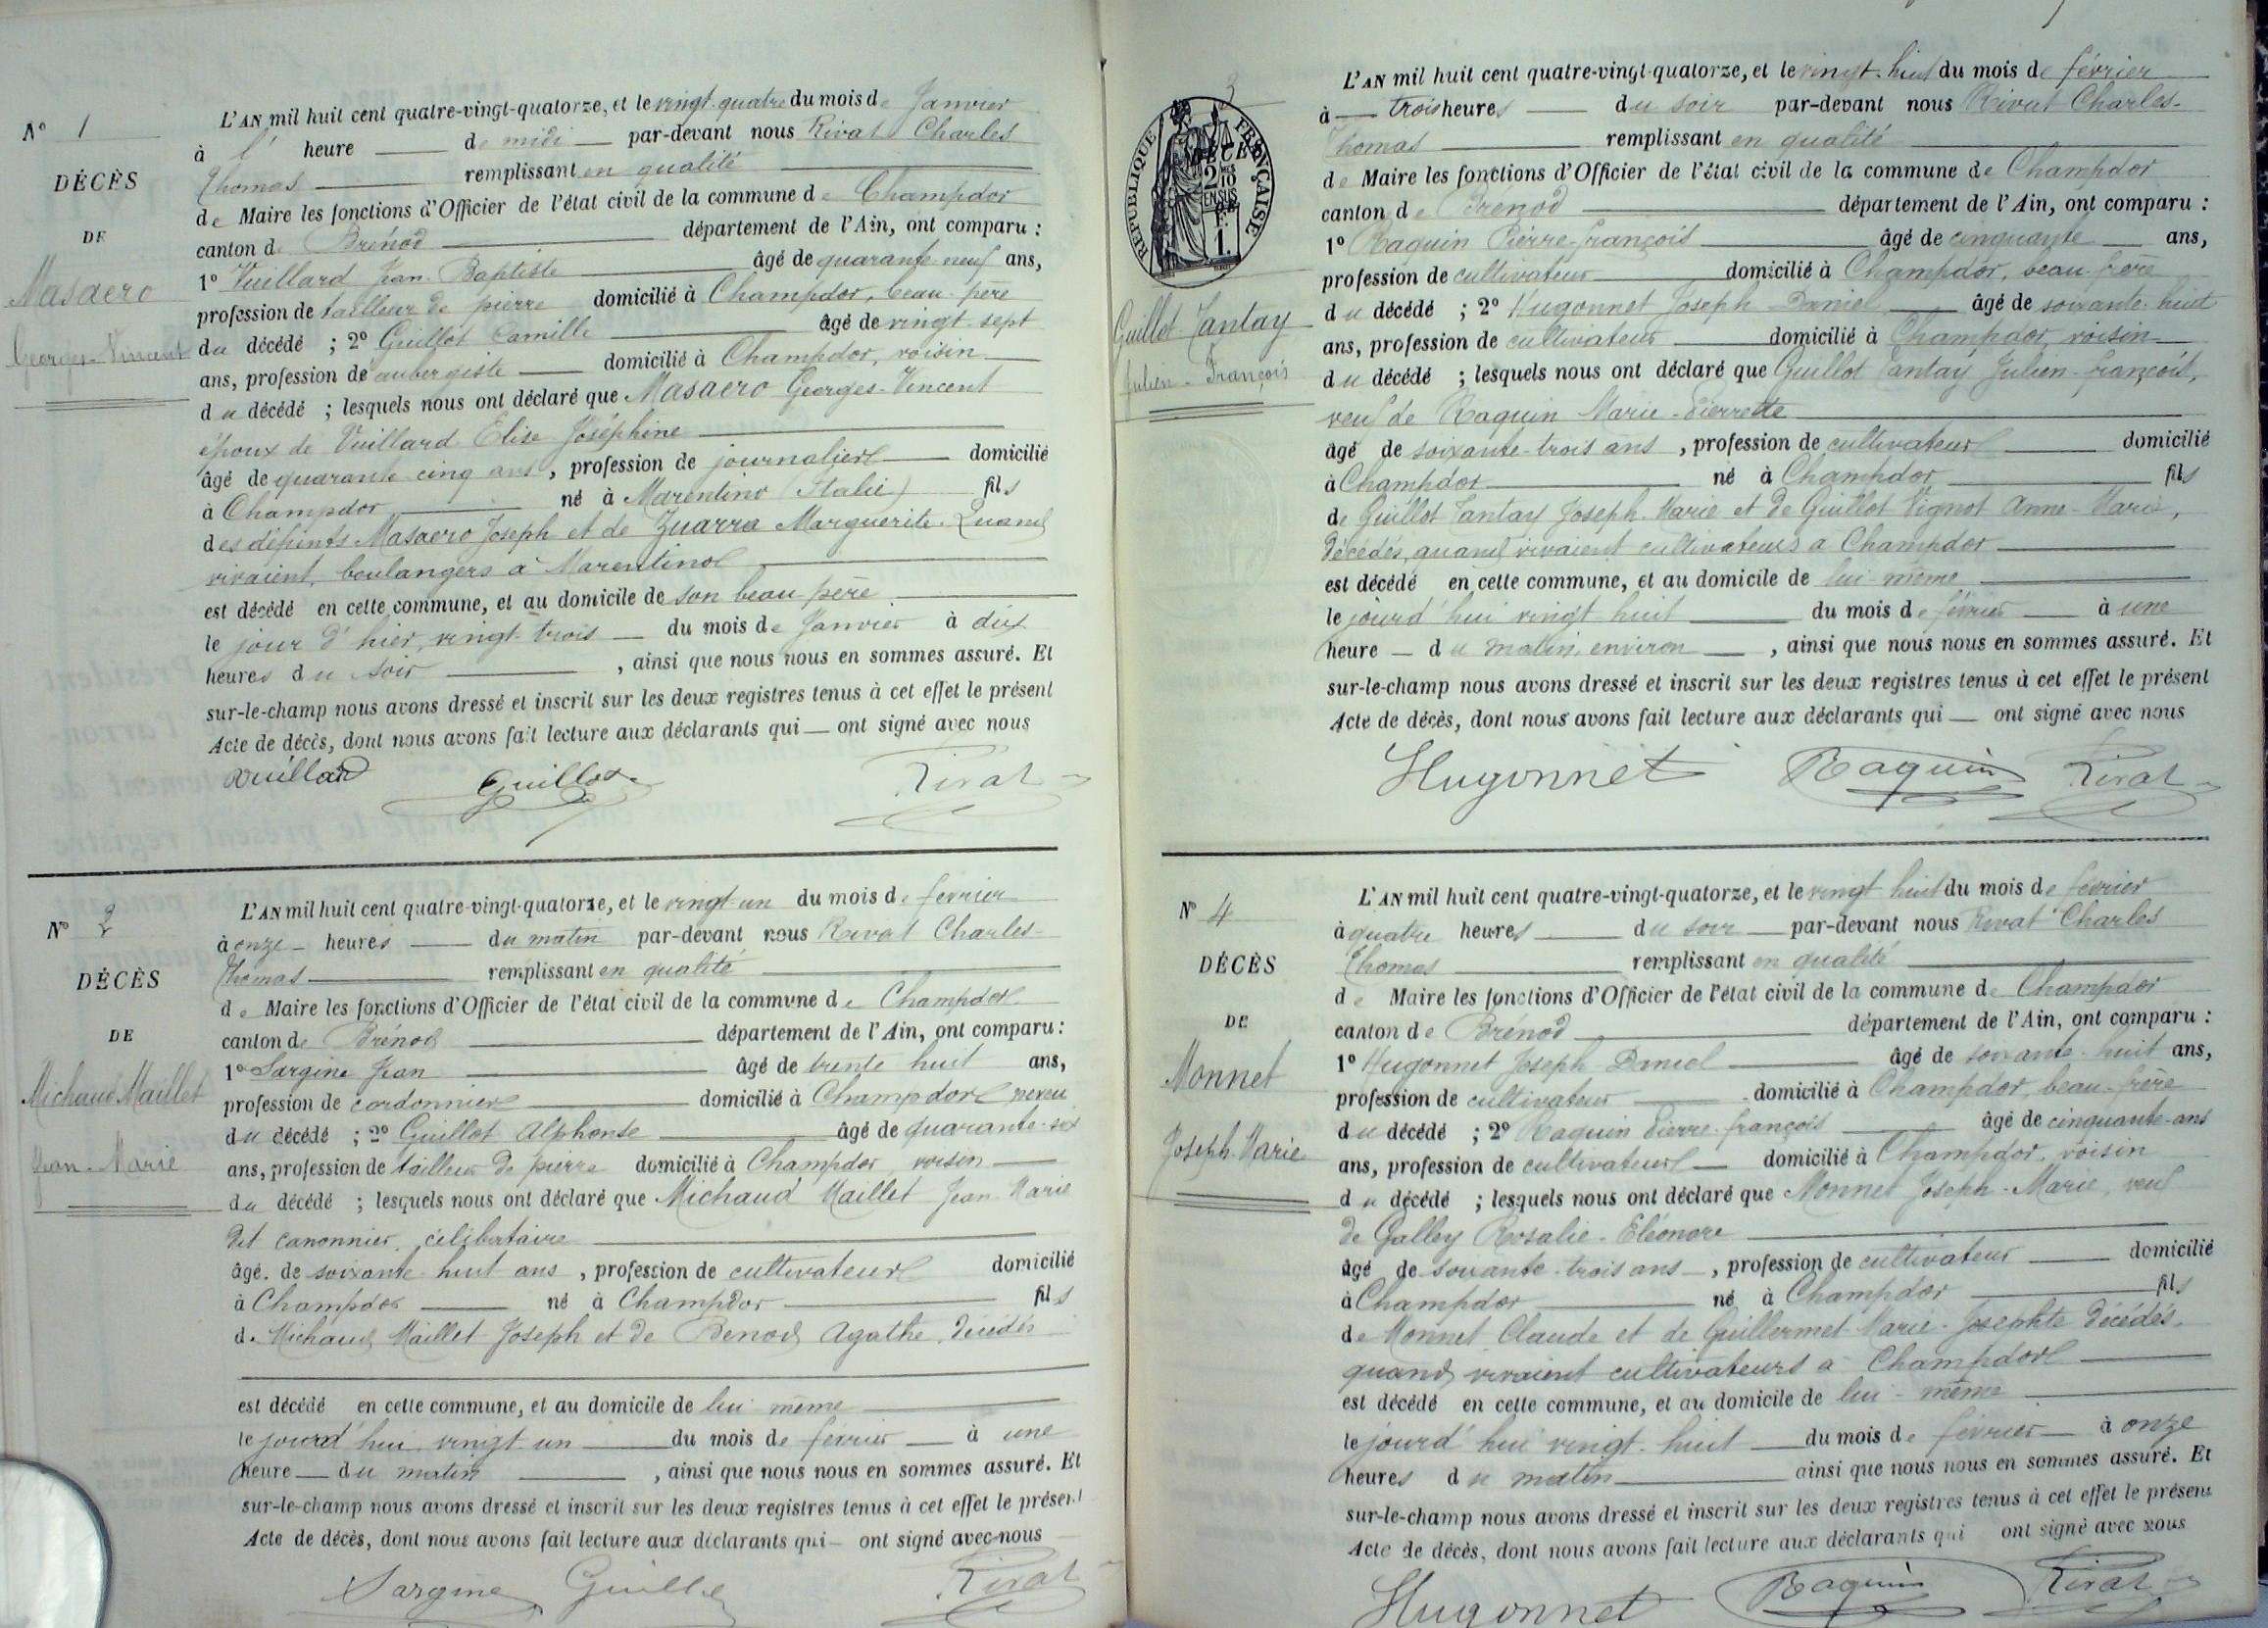 N° 1
DÉCÈS
DE
Masaero
Georges-Vincent
L'AN mil huit cent quatre-vingt-quatorze, et le vingt-quatre du mois de Janvier
à l' heure de midi par-devant nous Rivat Charles
Thomas remplissant en qualité
de Maire les fonctions d'Officier de l'état civil de la commune de Champdor
canton de Brénod département de l'Ain, ont comparu :
1° Vuillard Jean-Baptiste âgé de quarante neuf ans,
profession de tailleur de pierre domicilié à Champdor, beau-père
du décédé ; 2° Guillot Camille âgé de vingt-sept
ans, profession de aubergiste domicilié à Champdor, voisin
du décédé ; lesquels nous ont déclaré que Masaero Georges-Vincent
époux de Vuillard Elise Joséphine
âgé de quarante cinq ans, profession de journalier domicilié
à Champdor né à Marentino (Italie) fils
des défunts Masaero Joseph et de Zuarra Marguerite. Quand
vivaient, boulangers à Marentino
est décédé en cette commune, et au domicile de son beau père
le jour d'hier, vingt-trois du mois de Janvier à dix
heures du soir , ainsi que nous nous en sommes assuré. Et
sur-le-champ nous avons dressé et inscrit sur les deux registres tenus à cet effet le présent
Acte de décès, dont nous avons fait lecture aux déclarants qui — ont signé avec nous
Vuillard Guillot Rivat
N° 2
DÉCÈS
DE
Michaud Maillet
Jean-Marie
L'AN mil huit cent quatre-vingt-quatorze, et le vingt-un du mois de février
à onze heures du matin par-devant nous Rivat Charles
Thomas remplissant en qualité
de Maire les fonctions d'Officier de l'état civil de la commune de Champdor
canton de Brénod département de l'Ain, ont comparu :
1° Sargine Jean âgé de trente huit ans,
profession de cordonnier domicilié à Champdor neveu
du décédé ; 2° Guillot Alphonse âgé de quarante-six
ans, profession de tailleur de pierre domicilié à Champdor voisin
du décédé ; lesquels nous ont déclaré que Michaud Maillet Jean Marie
dit canonnier, célibataire
âgé de soixante huit ans, profession de cultivateur domicilié
à Champdor né à Champdor fils
de Michaud Maillet Joseph et de Benod Agathe, décédés
est décédé en cette commune, et au domicile de lui même
le jourd'hui vingt un du mois de février à une
heure du matin , ainsi que nous nous en sommes assuré. Et
sur-le-champ nous avons dressé et inscrit sur les deux registres tenus à cet effet le présent
Acte de décès, dont nous avons fait lecture aux déclarants qui — ont signé avec nous
Sargine Guillot Rivat
3
RÉPUBLIQUE FRANÇAISE
2/10 EN SUS
F. 1.
Guillot-Tantay
Julien-François
L'AN mil huit cent quatre-vingt-quatorze, et le vingt-huit du mois de février
à trois heures du soir par-devant nous Rivat Charles-
Thomas remplissant en qualité
de Maire les fonctions d'Officier de l'état civil de la commune de Champdor
canton de Brénod département de l'Ain, ont comparu :
1° Raquin Pierre-françois âgé de cinquante ans,
profession de cultivateur domicilié à Champdor, beau-frère
du décédé ; 2° Hugonnet Joseph-Daniel âgé de soixante-huit
ans, profession de cultivateur domicilié à Champdor, voisin
du décédé ; lesquels nous ont déclaré que Guillot Tantay Julien-françois,
veuf de Raquin Marie-Pierrette
âgé de soixante-trois ans, profession de cultivateur domicilié
à Champdor né à Champdor fils
de Guillot Tantay Joseph-Marie et de Guillot Vignot Anne-Marie,
décédés, quand vivaient cultivateurs à Champdor
est décédé en cette commune, et au domicile de lui même
le jourd'hui vingt huit du mois de février à une
heure du matin environ , ainsi que nous nous en sommes assuré. Et
sur-le-champ nous avons dressé et inscrit sur les deux registres tenus à cet effet le présent
Acte de décès, dont nous avons fait lecture aux déclarants qui — ont signé avec nous
Hugonnet Raquin Rivat
N° 4
DÉCÈS
DE
Monnet
Joseph-Marie
L'AN mil huit cent quatre-vingt-quatorze, et le vingt huit du mois de février
à quatre heures du soir par-devant nous Rivat Charles
Thomas remplissant en qualité
de Maire les fonctions d'Officier de l'état civil de la commune de Champdor
canton de Brénod département de l'Ain, ont comparu :
1° Hugonnet Joseph-Daniel âgé de soixante-huit ans,
profession de cultivateur domicilié à Champdor, beau-frère
du décédé ; 2° Raquin Pierre-françois âgé de cinquante-ans
ans, profession de cultivateur domicilié à Champdor, voisin
du décédé ; lesquels nous ont déclaré que Monnet Joseph-Marie, veuf
de Galley Rosalie-Eléonore
âgé de soixante-trois ans, profession de cultivateur domicilié
à Champdor né à Champdor fils
de Monnet Claude et de Guillermet Marie-Josephte décédés,
quand vivaient cultivateurs à Champdor
est décédé en cette commune, et au domicile de lui-même
le jourd'hui vingt-huit du mois de février à onze
heures du matin ainsi que nous nous en sommes assuré. Et
sur-le-champ nous avons dressé et inscrit sur les deux registres tenus à cet effet le présent
Acte de décès, dont nous avons fait lecture aux déclarants qui ont signé avec nous
Hugonnet Raquin Rivat